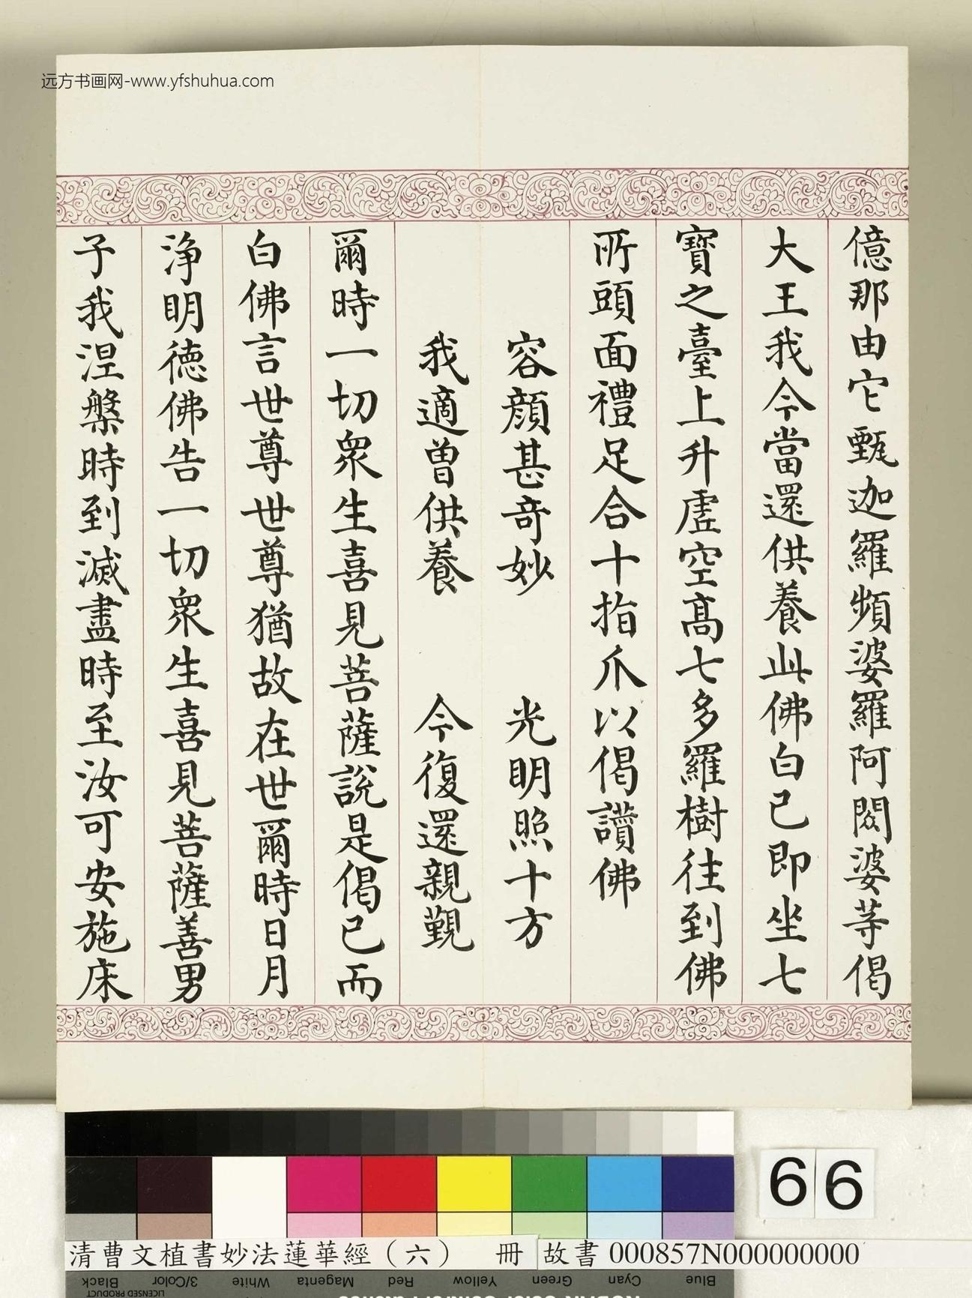 远方书画网-www.yfshuhua.com
億那由它甄迦羅頻婆羅阿閦婆等偈
大王我今當還供養此佛白已即坐七
寶之臺上升虛空高七多羅樹往到佛
所頭面禮足合十指爪以偈讚佛
容顏甚奇妙 光明照十方
我適曾供養 今復還親覲
爾時一切眾生喜見菩薩說是偈已而
白佛言世尊世尊猶故在世爾時日月
淨明德佛告一切眾生喜見菩薩善男
子我涅槃時到滅盡時至汝可安施床
66
清曹文植書妙法蓮華經（六） 冊 故書 000857N000000000
Black 3/Color White Magenta Red Yellow Green Cyan Blue
LICENSED PRODUCT